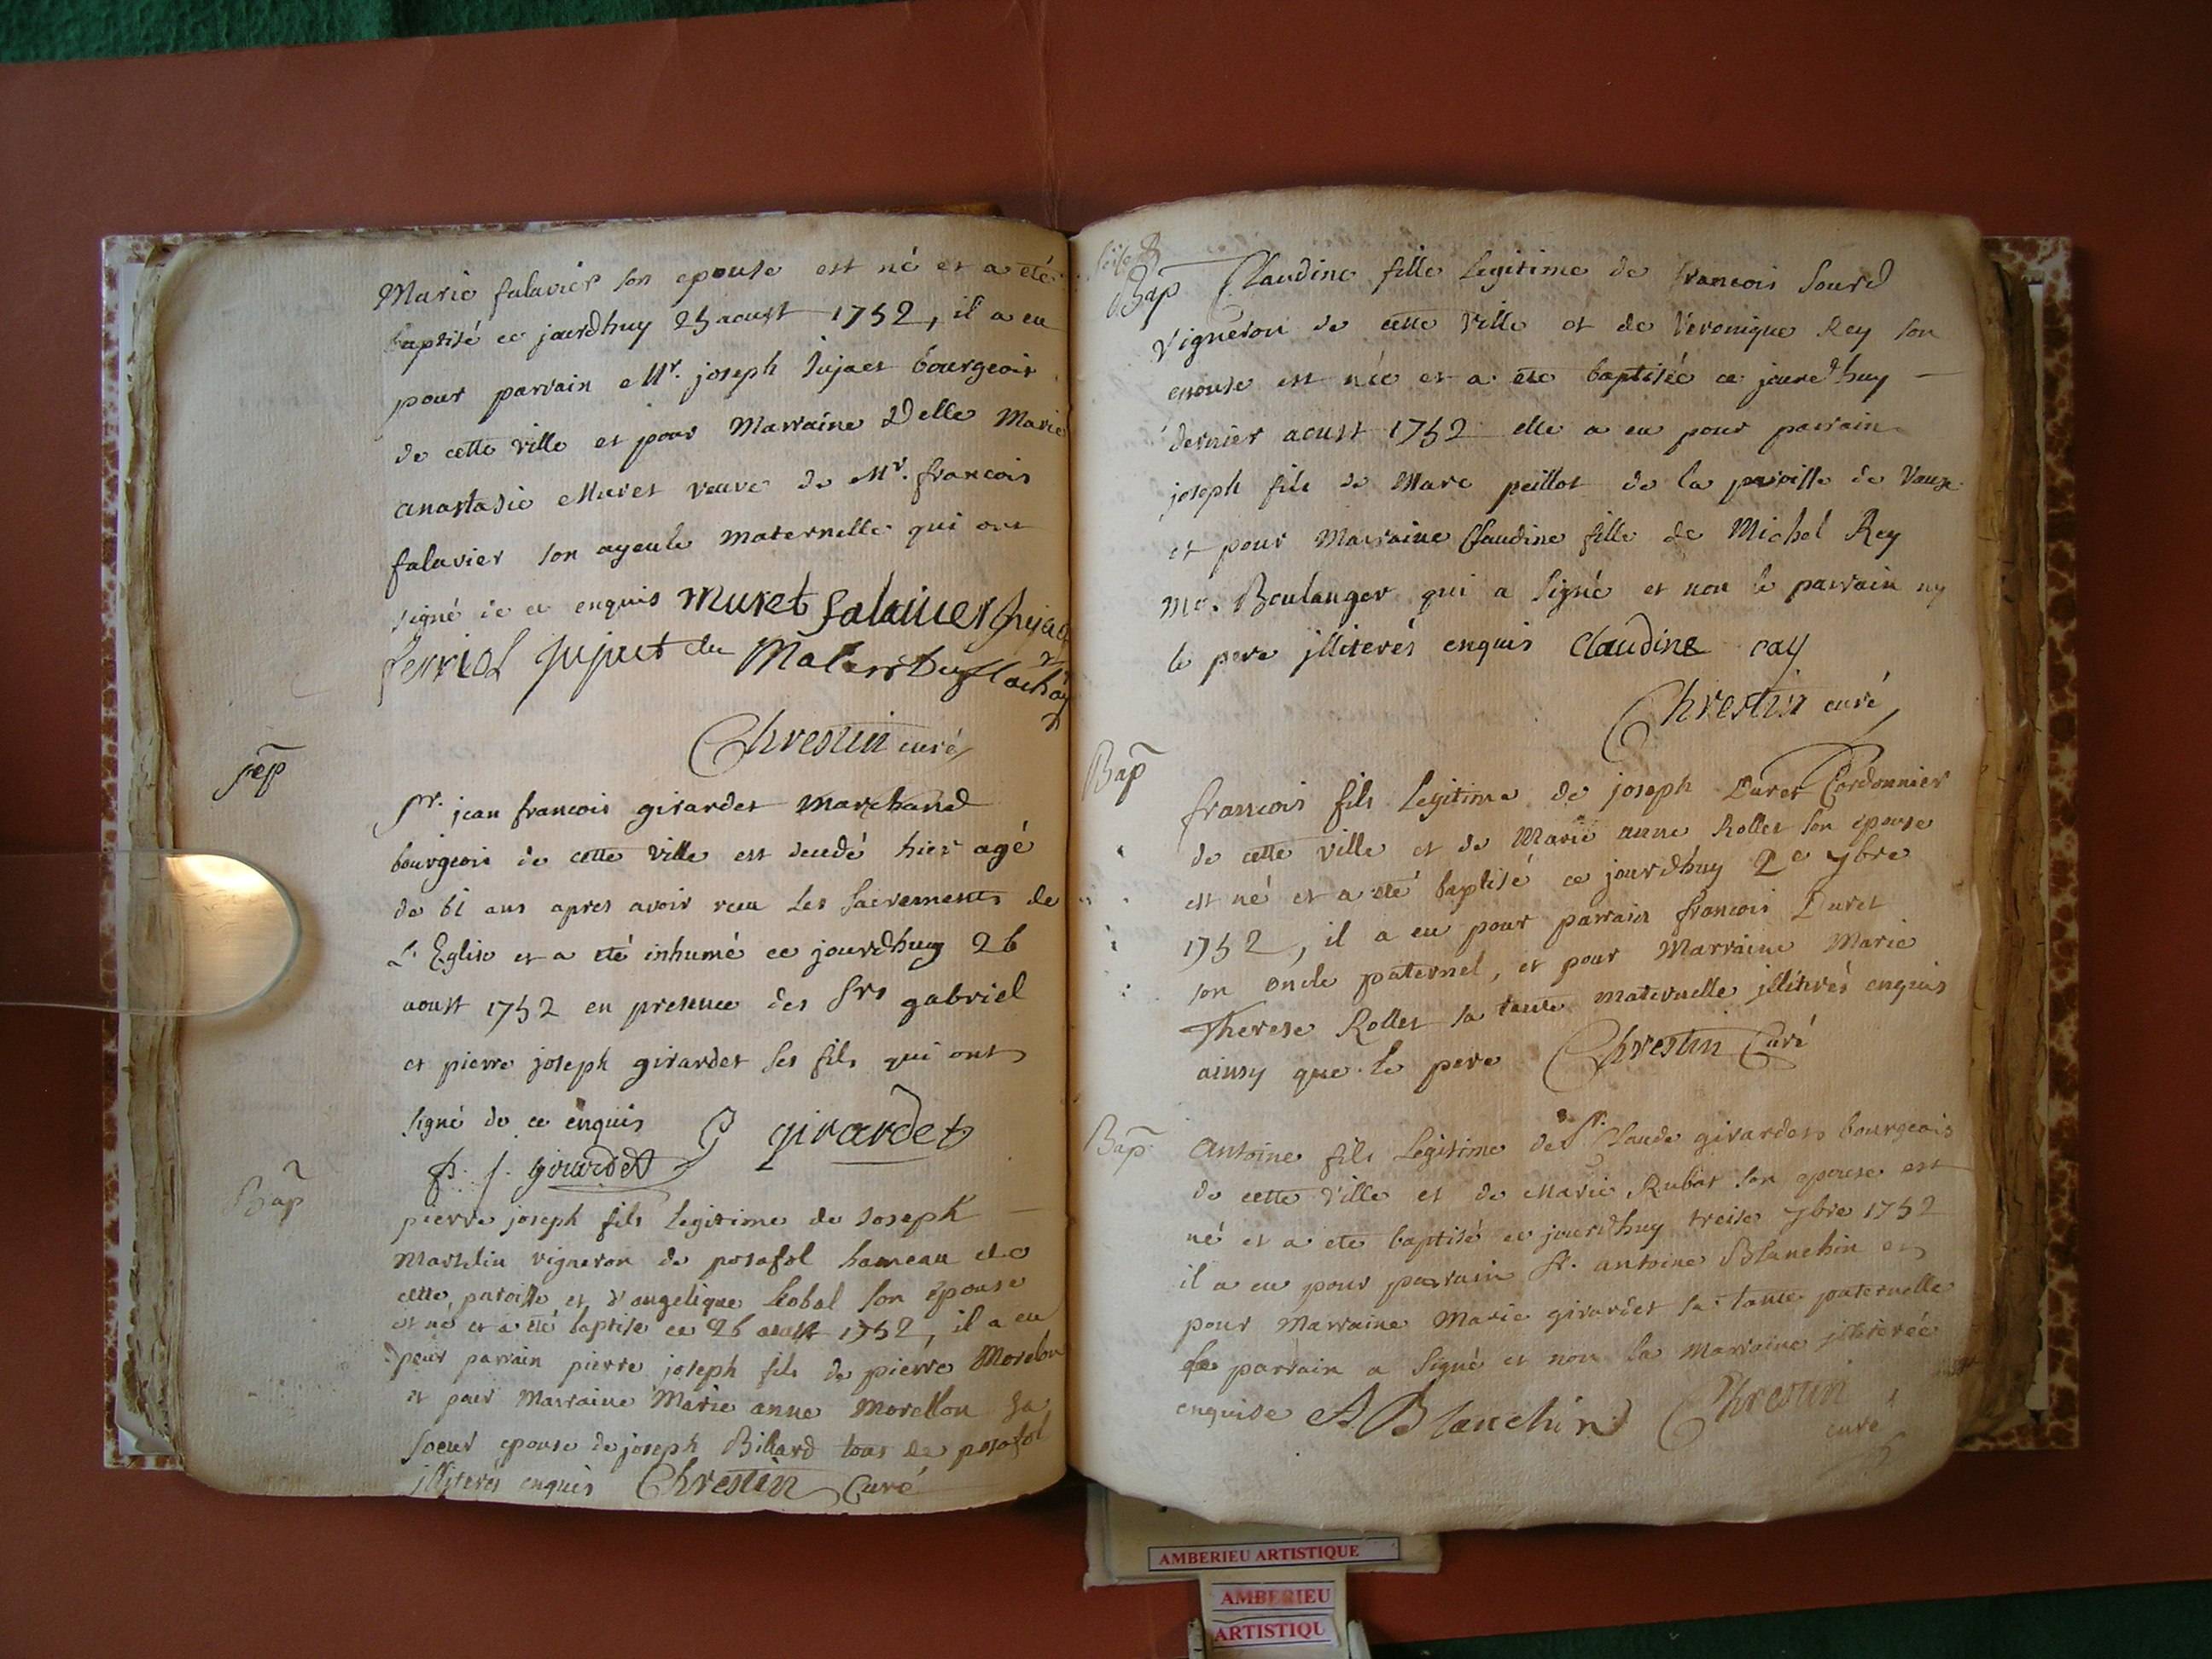 Marie falavier son epouse est né et a eté
baptisé ce jourdhuy 25 aoust 1752, il a eu
pour parrain Mr. joseph Jujaet bourgeois
de cette ville et pour Marraine Delle Marie
anastasie Muret veuve de Mr. francois
falavier son ayeule maternelle qui ont
signé de ce enquis Muret falavier
ferriol Jujuet du
Chrestin curé
sep
Sr. jean francois girardet marchand
bourgeois de cette ville est decedé hier agé
de 61 ans apres avoir recu les sacrements de
L'Eglise et a eté inhumé ce jourdhuy 26
aoust 1752 en presence des Srs gabriel
et pierre joseph girardet ses fils qui ont
signé de ce enquis G girardet
p. j. girardet
Bap
pierre joseph fils legitime de joseph
vigneron de posafol hameau de
cette paroisse et d'angelique son épouse
est né et a eté baptisé ce 26 aoust 1752, il a eu
pour parrain pierre joseph fils de pierre Morellon
et pour Marraine Marie anne Morellon sa
soeur epouse de joseph Billard tous de posafol
illiterés enquis Chrestin Curé
Bap
Claudine fille legitime de francois Sourd
vigneron de cette ville et de Veronique Rey son
epouse est née et a eté baptisée ce jourdhuy
dernier aoust 1752 elle a eu pour parrain
joseph fils de Marc peillot de la paroisse de Vaux
et pour Marraine Claudine fille de Michel Rey
Me. Boulanger qui a signé et non le parrain ny
le pere jlliterés enquis Claudine ray
Chrestin curé
Bap
francois fils legitime de joseph Duret Cordonnier
de cette ville et de Marie anne Rollet son epouse
est né et a eté baptisé ce jourdhuy 2e 7bre
1752, il a eu pour parrain francois Duret
son oncle paternel, et pour Marraine Marie
Therese Rollet sa tante maternelle jlliterés enquis
ainsy que le pere Chrestin Curé
Bap
Antoine fils legitime de Sr. Claude girardet bourgeois
de cette ville et de Marie Rubat son epouse est
né et a eté baptisé ce jourdhuy treise 7bre 1752
il a eu pour parrain Sr. antoine Blanchin et
pour Marraine Marie girardet sa tante paternelle
le parrain a signé et non la Marraine jlliterée
enquise A. Blanchin Chrestin
curé
AMBERIEU ARTISTIQUE
AMBERIEU
ARTISTIQU